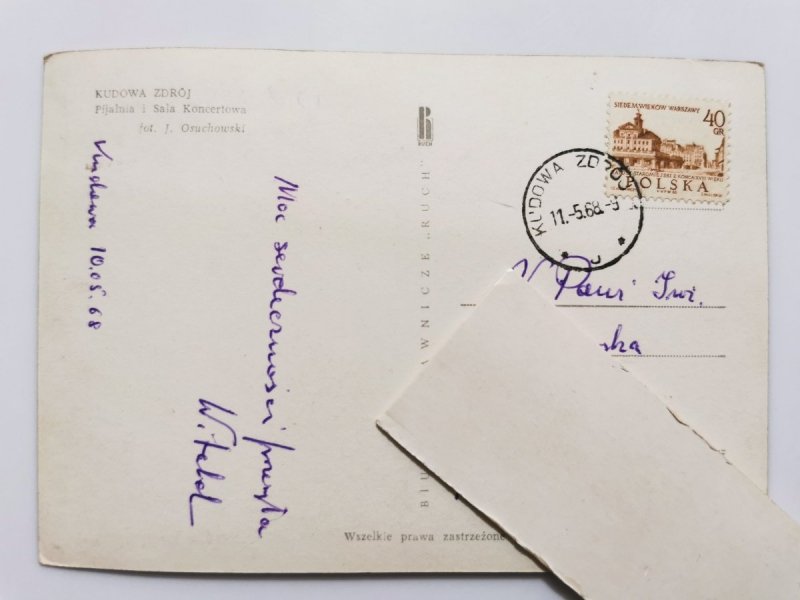 KUDOWA ZDRÓJ
Pijalnia i Sala Koncertowa
fot. J. Osuchowski
Kudowa 10.05.68
Moc serdeczności przesyła
Witold
RUCH
AWNICZE „RUCH”
Wszelkie prawa zastrzeżone
SIEDEM WIEKÓW WARSZAWY
40
GR
POLSKA
KUDOWA ZDRÓJ
11.-5.68.-9
W. Pani
ska